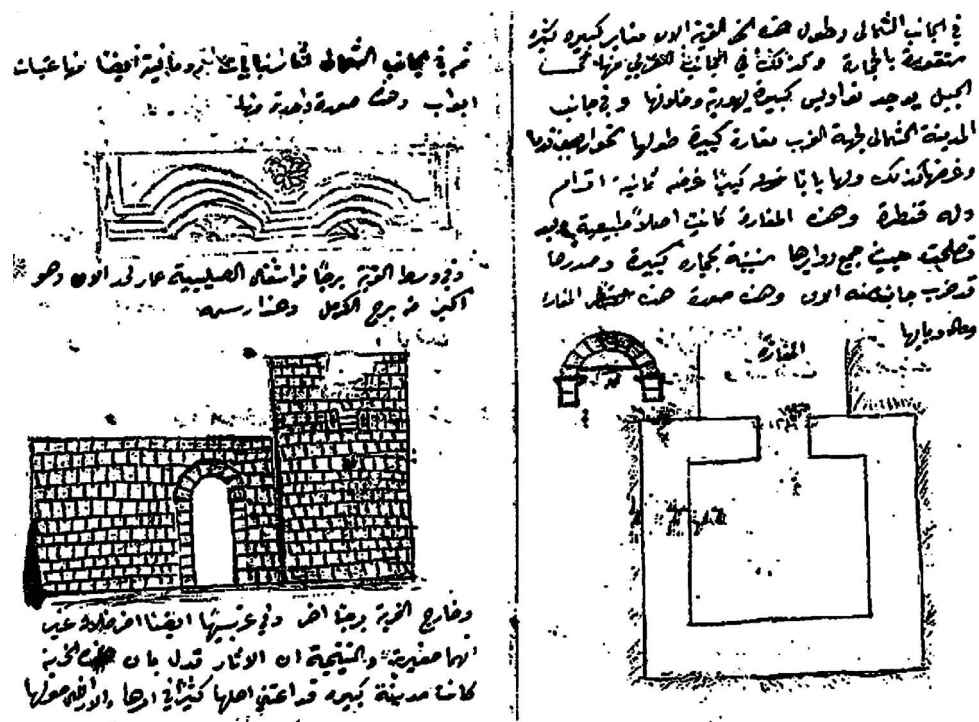 في الجانب الشمالي وطول هذه الخربة الان مقابر كبيرة كثيرة
منقورة بالحجارة وكذلك في الجانب الغربي منها تحت
الجبل يوجد نواويس كبيرة يهودية وخلافها وفي جانب
المدينة الشمالي لجهة الغرب مغارة كبيرة طولها نحو اربعين قدما
وعرضها كذلك ولها بابا عرضه ثمانية اقدام
وله قنطرة وهذه المغارة كانت اصلا طبيعية
حيث جميع دوايرها مبنية بحجارة كبيرة وصدرها
قد خرب جانب منه الان وهذه صورة هذه المغارة
وبابها
المغارة
ثم في الجانب الشمالي رومانية ايضا منها عتبات
ابواب وهذه صورة واحدة منها
وفي وسط الخربة برجا من اشغال الصليبية عمار الان وهو
اكبر من برج الكرمل وهذا رسمه
وخارج الخربة برجا اخر وفي غربيها ايضا اخر خلافه غير
انها صغيرة والنتيجة ان الاثار تدل بان هذه الخربة
كانت مدينة كبيرة قد اعتنى اهلها كثيرا في امرها والاراضي حولها